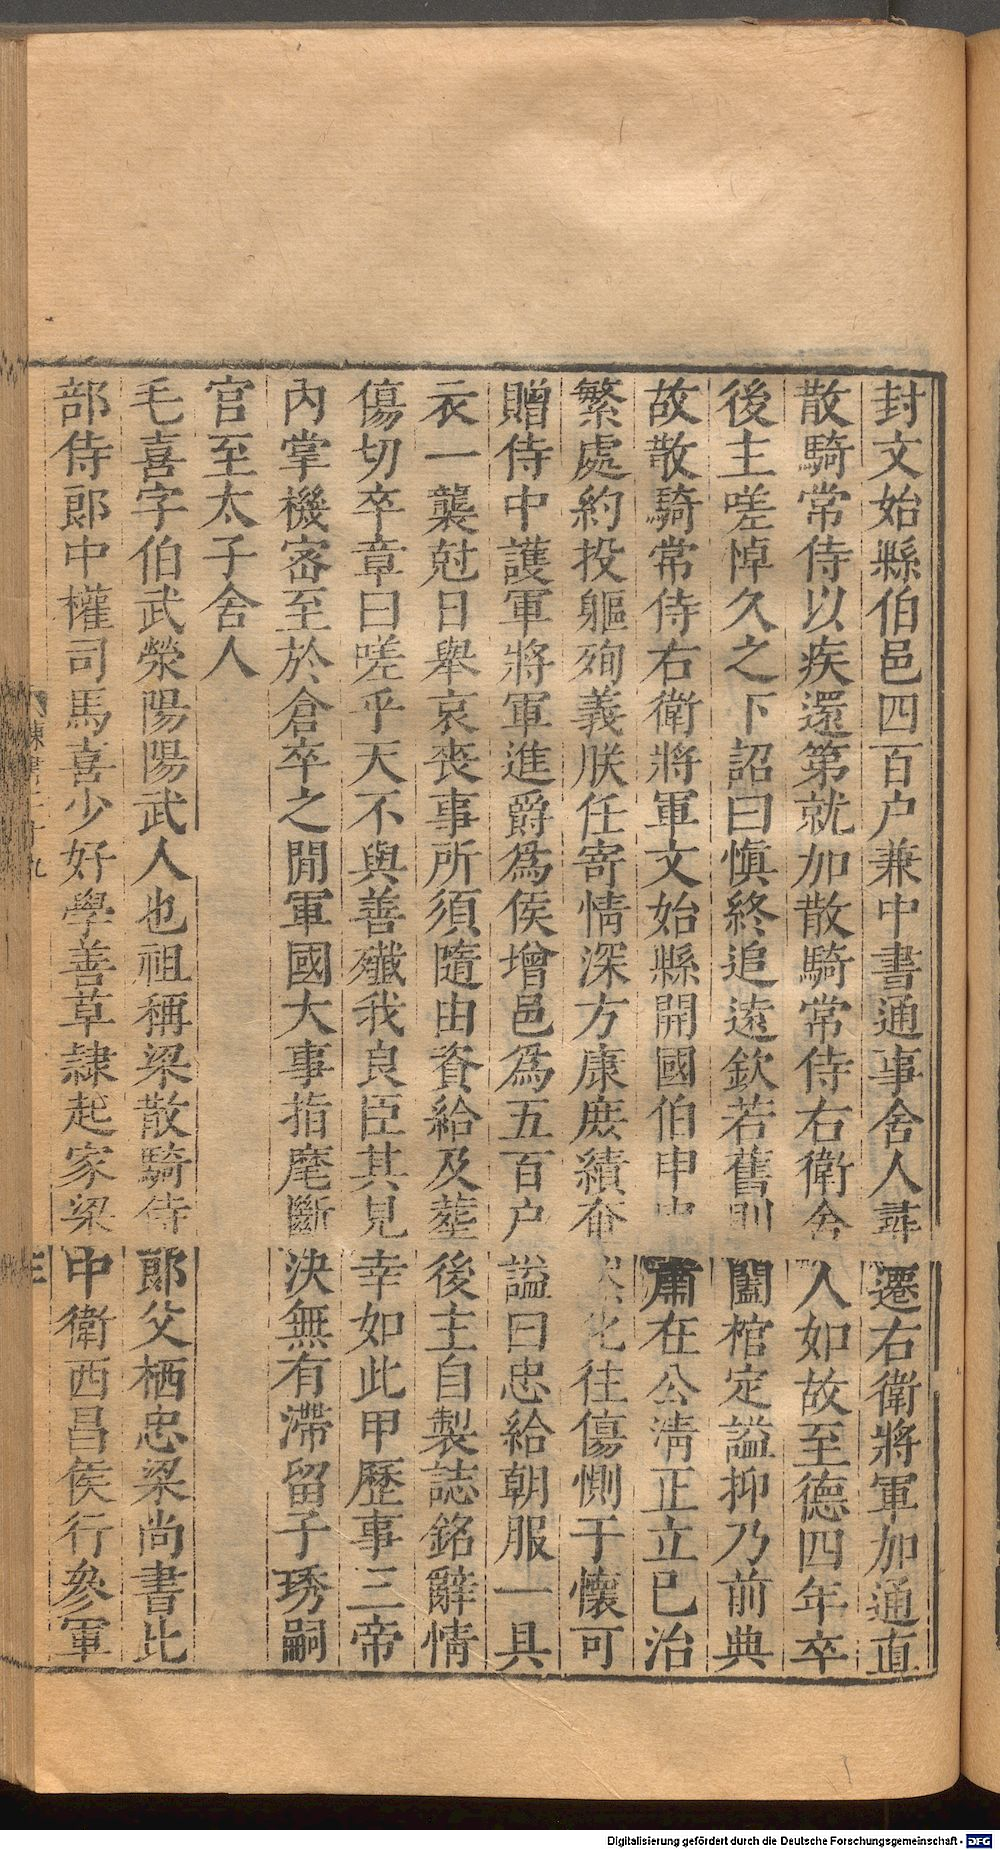 封文始縣伯邑四百户兼中書通事舍人尋遷右衛將軍加通直
散騎常侍以疾還第就加散騎常侍右衛舍人如故至德四年卒
後主嗟悼久之下詔曰愼終追遠欽若舊則闔棺定謚抑乃前典
故散騎常侍右衛將軍文始縣開國伯申肅在公清正立已治
繁處約投軀殉義朕任寄情深方康庶績奄化往傷惻于懷可
贈侍中護軍將軍進爵爲侯增邑爲五百户謚曰忠給朝服一具
衣一襲尅日舉哀喪事所須隨由資給及塟後主自製誌銘辭情
傷切卒章曰嗟乎天不與善殲我良臣其見幸如此甲歷事三帝
內掌機密至於倉卒之閒軍國大事指麾斷決無有滯留子琇嗣
官至太子舍人
毛喜字伯武滎陽陽武人也祖稱梁散騎侍郎父栖忠梁尚書比
部侍郎中權司馬喜少好學善草隸起家梁中衛西昌侯行參軍
Digitalisierung gefördert durch die Deutsche Forschungsgemeinschaft - DFG